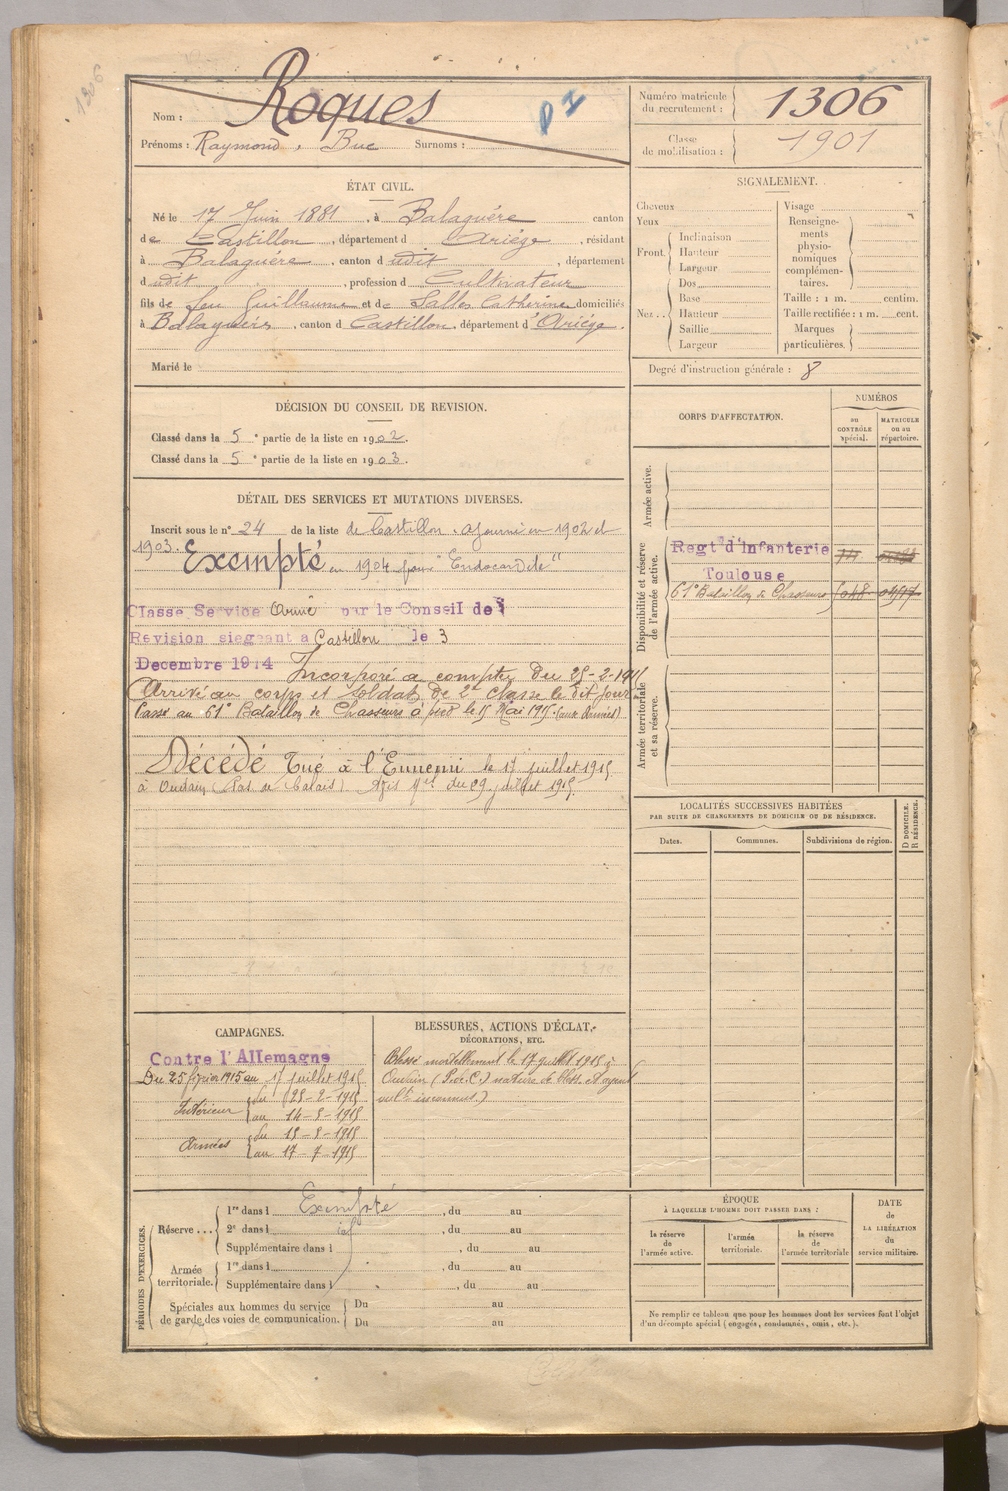 1306
Nom : Roques
Prénoms : Raymond, Buc Surnoms :
Numéro matricule du recrutement : 1306
Classe de mobilisation : 1901
ÉTAT CIVIL.
Né le 17 Juin 1881, à Balaguére canton
de Castillon, département d Ariége, résidant
à Balaguére, canton d udit, département
d udit, profession d Cultivateur
fils de feu Guillaume et de Salles Catherine domiciliés
à Balaguéres, canton d Castillon, département d'Ariége.
Marié le
SIGNALEMENT.
Cheveux
Yeux
Front. Inclinaison
Hauteur
Largeur
Nez.. Dos
Base
Hauteur
Saillie
Largeur
Visage
Renseigne-
ments
physio-
nomiques
complémen-
taires.
Taille : 1 m. centim.
Taille rectifiée : 1 m. cent.
Marques
particulières.
Degré d'instruction générale : 8
DÉCISION DU CONSEIL DE REVISION.
Classé dans la 5e partie de la liste en 1902.
Classé dans la 5e partie de la liste en 1903.
DÉTAIL DES SERVICES ET MUTATIONS DIVERSES.
Inscrit sous le n° 24 de la liste de Castillon. Ajourné en 1902 et
1903. Exempté en 1904 pour "Endocardite"
Classe Service Armé par le Conseil de
Revision siegeant a Castillon le 3
Decembre 1914 Incorporé à compter du 25-2-1915
Arrivé au corps et soldat de 2e classe le dit jour
Passé au 61e Bataillon de Chasseurs à pied le 15 Mai 1915 (aux Armées)
Décédé Tué à l'Ennemi le 17 juillet 1915
à (Pas de Calais). Avis Mel du 29 juillet 1915.
CORPS D'AFFECTATION.
NUMÉROS
au CONTRÔLE spécial.
MATRICULE ou au répertoire.
Armée active.
Disponibilité et réserve de l'armée active.
Regt d'Infanterie
Toulouse
61e Bataillon de Chasseurs
Armée territoriale et sa réserve.
LOCALITÉS SUCCESSIVES HABITÉES
PAR SUITE DE CHANGEMENTS DE DOMICILE OU DE RÉSIDENCE.
Dates. Communes. Subdivisions de région. D DOMICILE. R RÉSIDENCE.
CAMPAGNES.
Contre l'Allemagne
Du 25 février 1915 au 17 juillet 1915
Intérieur du 25-2-1915
au 14-5-1915
Armées du 15-5-1915
au 17-7-1915
BLESSURES, ACTIONS D'ÉCLAT,
DÉCORATIONS, ETC.
Blessé mortellement le 17 juillet 1915 à
(P. de C.) nature de bless. et agent
inconnus.)
PÉRIODES D'EXERCICES.
Réserve... 1re dans l Exempté, du au
2e dans l, du au
Supplémentaire dans l, du au
Armée territoriale. 1re dans l, du au
Supplémentaire dans l, du au
Spéciales aux hommes du service
de garde des voies de communication.
Du au
Du au
ÉPOQUE
À LAQUELLE L'HOMME DOIT PASSER DANS :
la réserve de l'armée active.
l'armée territoriale.
la réserve de l'armée territoriale
DATE de LA LIBÉRATION du service militaire.
Ne remplir ce tableau que pour les hommes dont les services font l'objet
d'un décompte spécial (engagés, condamnés, omis, etc.).